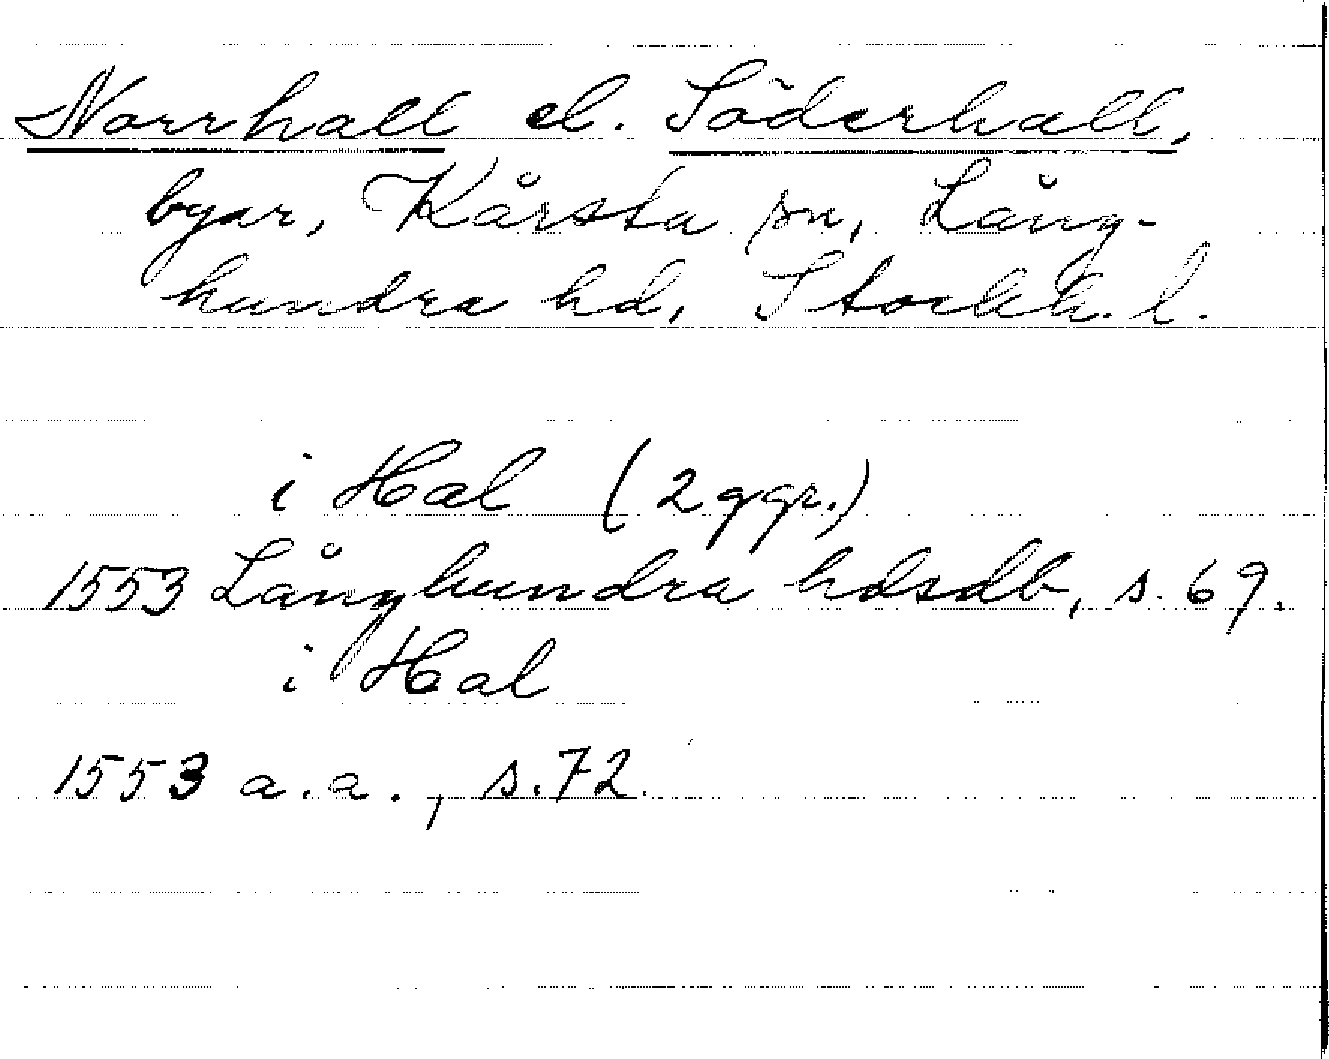 Norrhall el. Söderhall,
byar, Kårsta sn, Lång-
hundra hd, Stockh. l.
i Hal (2 ggr.)
1553 Långhundra hdsdb, s. 69.
i Hal
1553 a.a., s. 72.